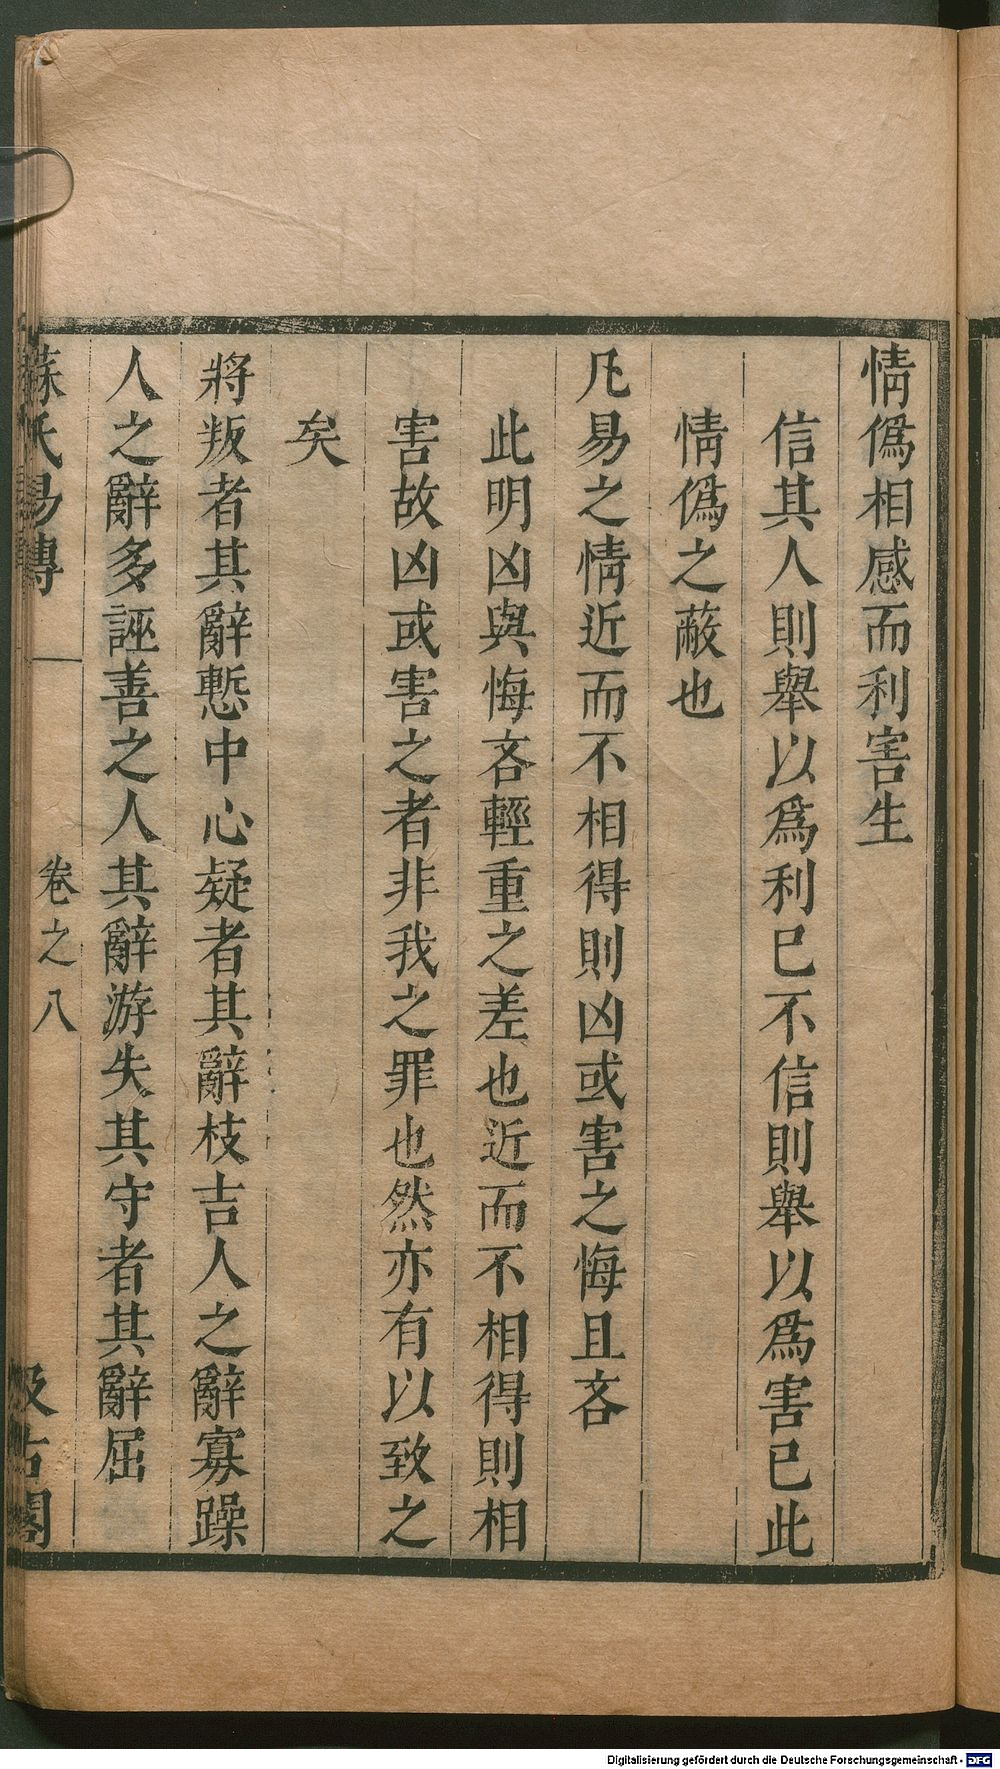 情僞相感而利害生
信其人則舉以爲利已不信則舉以爲害已此
情僞之蔽也
凡易之情近而不相得則凶或害之悔且吝
此明凶與悔吝輕重之差也近而不相得則相
害故凶或害之者非我之罪也然亦有以致之
矣
將叛者其辭慙中心疑者其辭枝吉人之辭寡躁
人之辭多誣善之人其辭游失其守者其辭屈
蘇氏易傳 卷之八 汲古閣
Digitalisierung gefördert durch die Deutsche Forschungsgemeinschaft - DFG